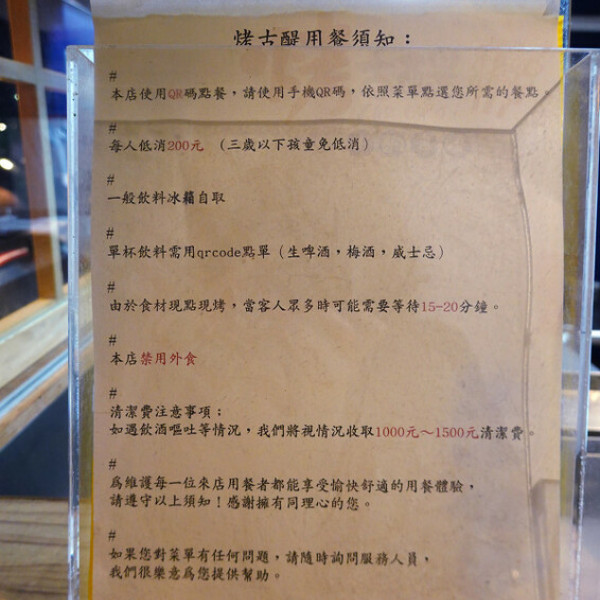 烤古醒用餐須知：
#
本店使用QR碼點餐，請使用手機QR碼，依照菜單點選您所需的餐點。
#
每人低消200元 （三歲以下孩童免低消）
#
一般飲料冰箱自取
#
單杯飲料需用qrcode點單（生啤酒，梅酒，威士忌）
#
由於食材現點現烤，當客人眾多時可能需要等待15-20分鐘。
#
本店禁用外食
#
清潔費注意事項：
如遇飲酒嘔吐等情況，我們將視情況收取1000元～1500元清潔費。
#
為維護每一位來店用餐者都能享受愉快舒適的用餐體驗，
請遵守以上須知！感謝擁有同理心的您。
#
如果您對菜單有任何問題，請隨時詢問服務人員，
我們很樂意為您提供幫助。